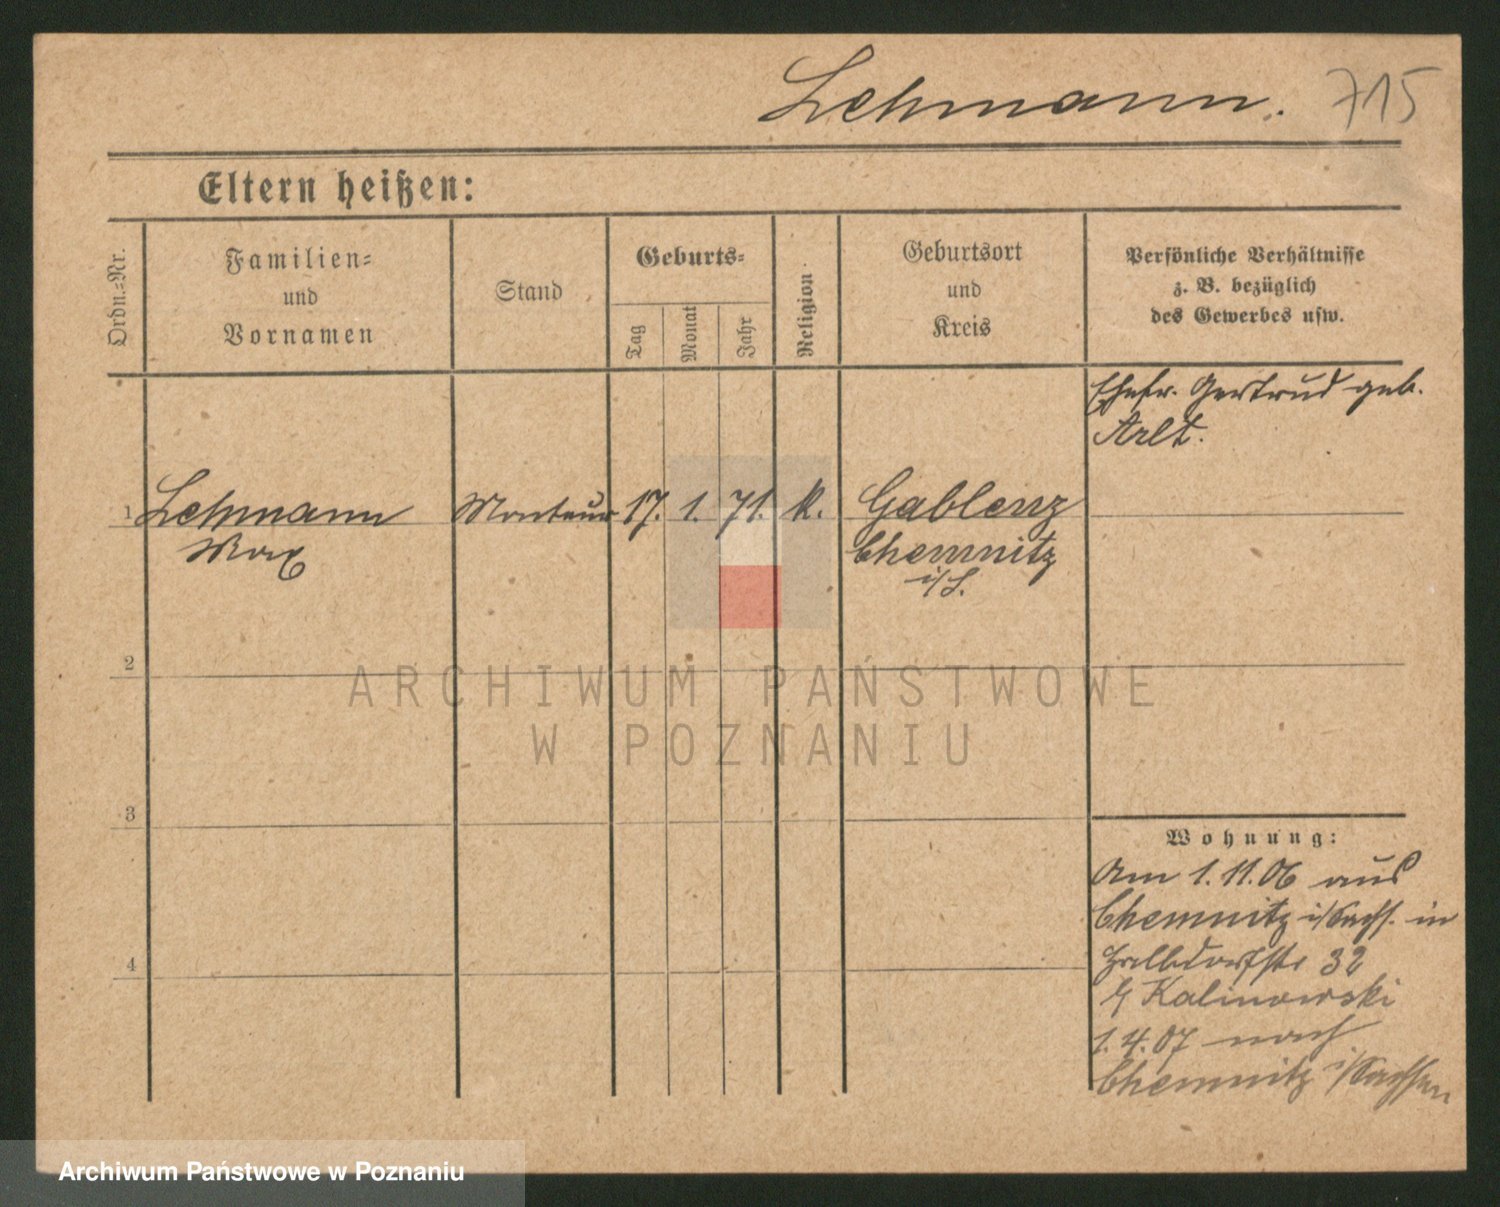 Lehmann. 715
Eltern heißen:
Ordn.-Nr.
Familien-
und
Vornamen
Stand
Geburts-
Tag
Monat
Jahr
Religion
Geburtsort
und
Kreis
Persönliche Verhältnisse
z. B. bezüglich
des Gewerbes usw.
Ehefr. Gertrud geb.
Arlt.
1 Lehmann Monteur 17. 1. 71. k. Gablenz
Max Chemnitz
i/S.
2
ARCHIWUM PAŃSTWOWE
W POZNANIU
3
Wohnung:
Am 1.11.06 aus
Chemnitz i/Sachs. in
Halbdorfstr 32
b/ Kalinowski
4
1.4.07 nach
Chemnitz i/Sachsen
Archiwum Państwowe w Poznaniu